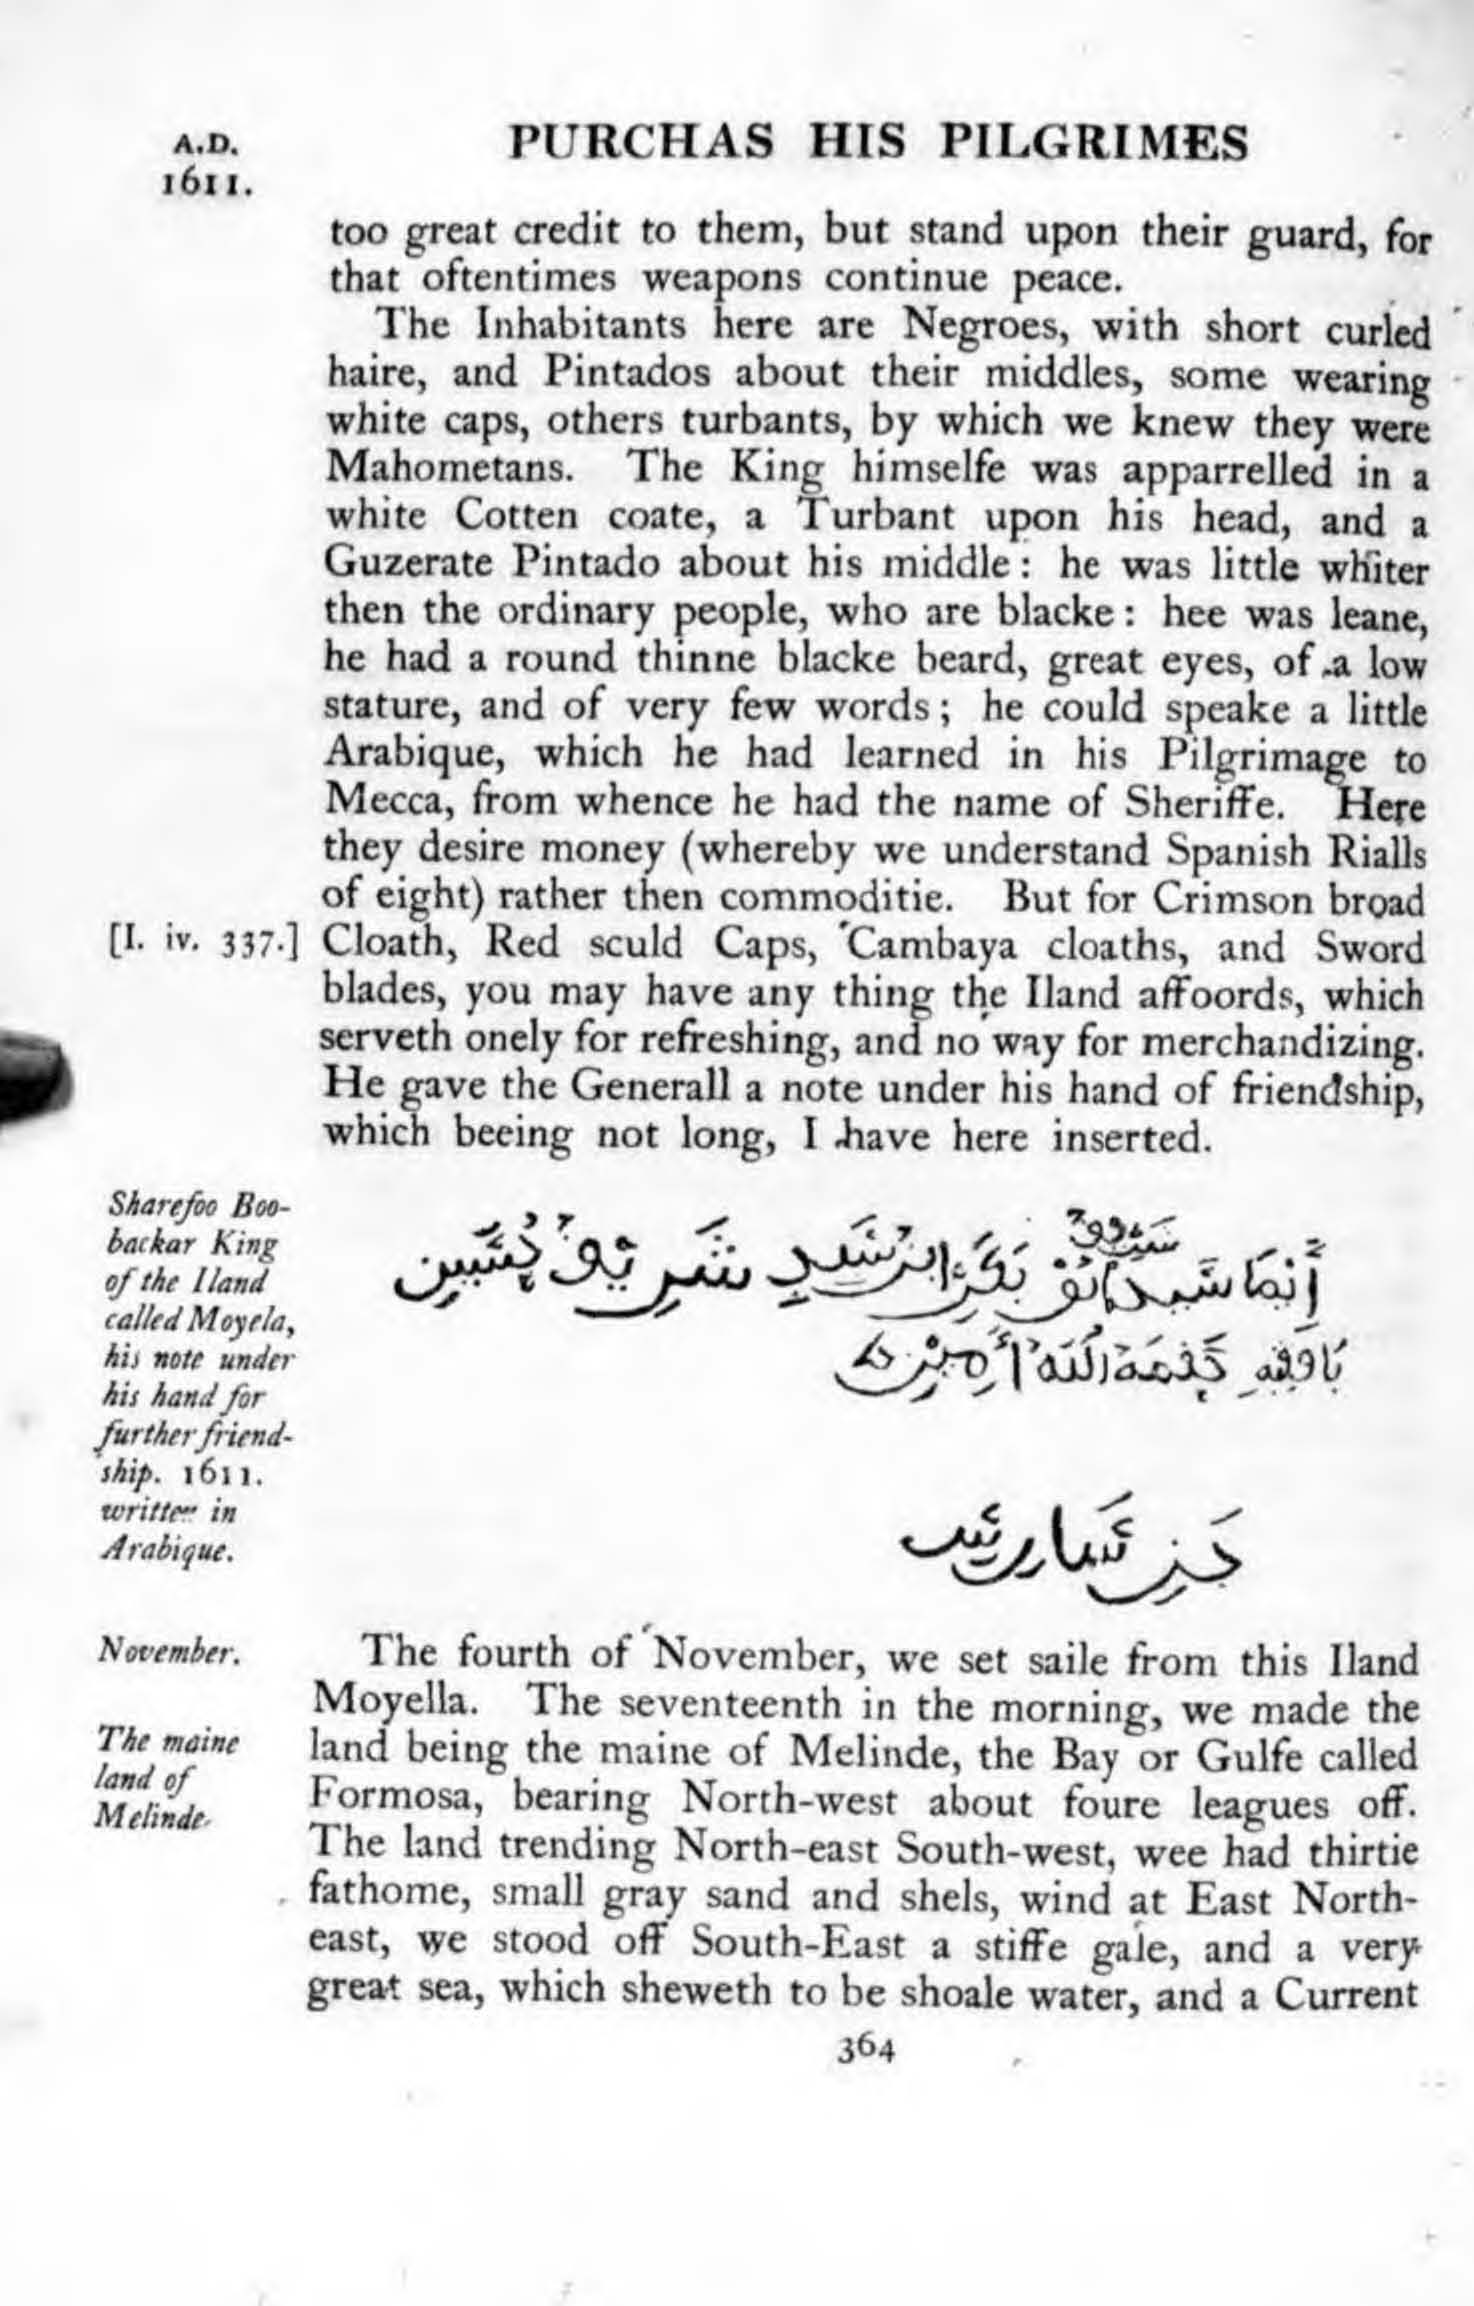 A.D.
1611.
PURCHAS HIS PILGRIMES
too great credit to them, but stand upon their guard, for
that oftentimes weapons continue peace.
The Inhabitants here are Negroes, with short curled
haire, and Pintados about their middles, some wearing
white caps, others turbants, by which we knew they were
Mahometans. The King himselfe was apparrelled in a
white Cotten coate, a Turbant upon his head, and a
Guzerate Pintado about his middle: he was little whiter
then the ordinary people, who are blacke: hee was leane,
he had a round thinne blacke beard, great eyes, of a low
stature, and of very few words; he could speake a little
Arabique, which he had learned in his Pilgrimage to
Mecca, from whence he had the name of Sheriffe. Here
they desire money (whereby we understand Spanish Rialls
of eight) rather then commoditie. But for Crimson broad
[I. iv. 337.] Cloath, Red sculd Caps, Cambaya cloaths, and Sword
blades, you may have any thing the Iland affoords, which
serveth onely for refreshing, and no way for merchandizing.
He gave the Generall a note under his hand of friendship,
which beeing not long, I have here inserted.
Sharefoo Boo-
backar King
of the Iland
called Moyela,
his note under
his hand for
further friend-
ship. 1611.
written in
Arabique.
November.
The fourth of November, we set saile from this Iland
Moyella. The seventeenth in the morning, we made the
The maine
land of
Melinde.
land being the maine of Melinde, the Bay or Gulfe called
Formosa, bearing North-west about foure leagues off.
The land trending North-east South-west, wee had thirtie
fathome, small gray sand and shels, wind at East North-
east, we stood off South-East a stiffe gale, and a very
great sea, which sheweth to be shoale water, and a Current
364